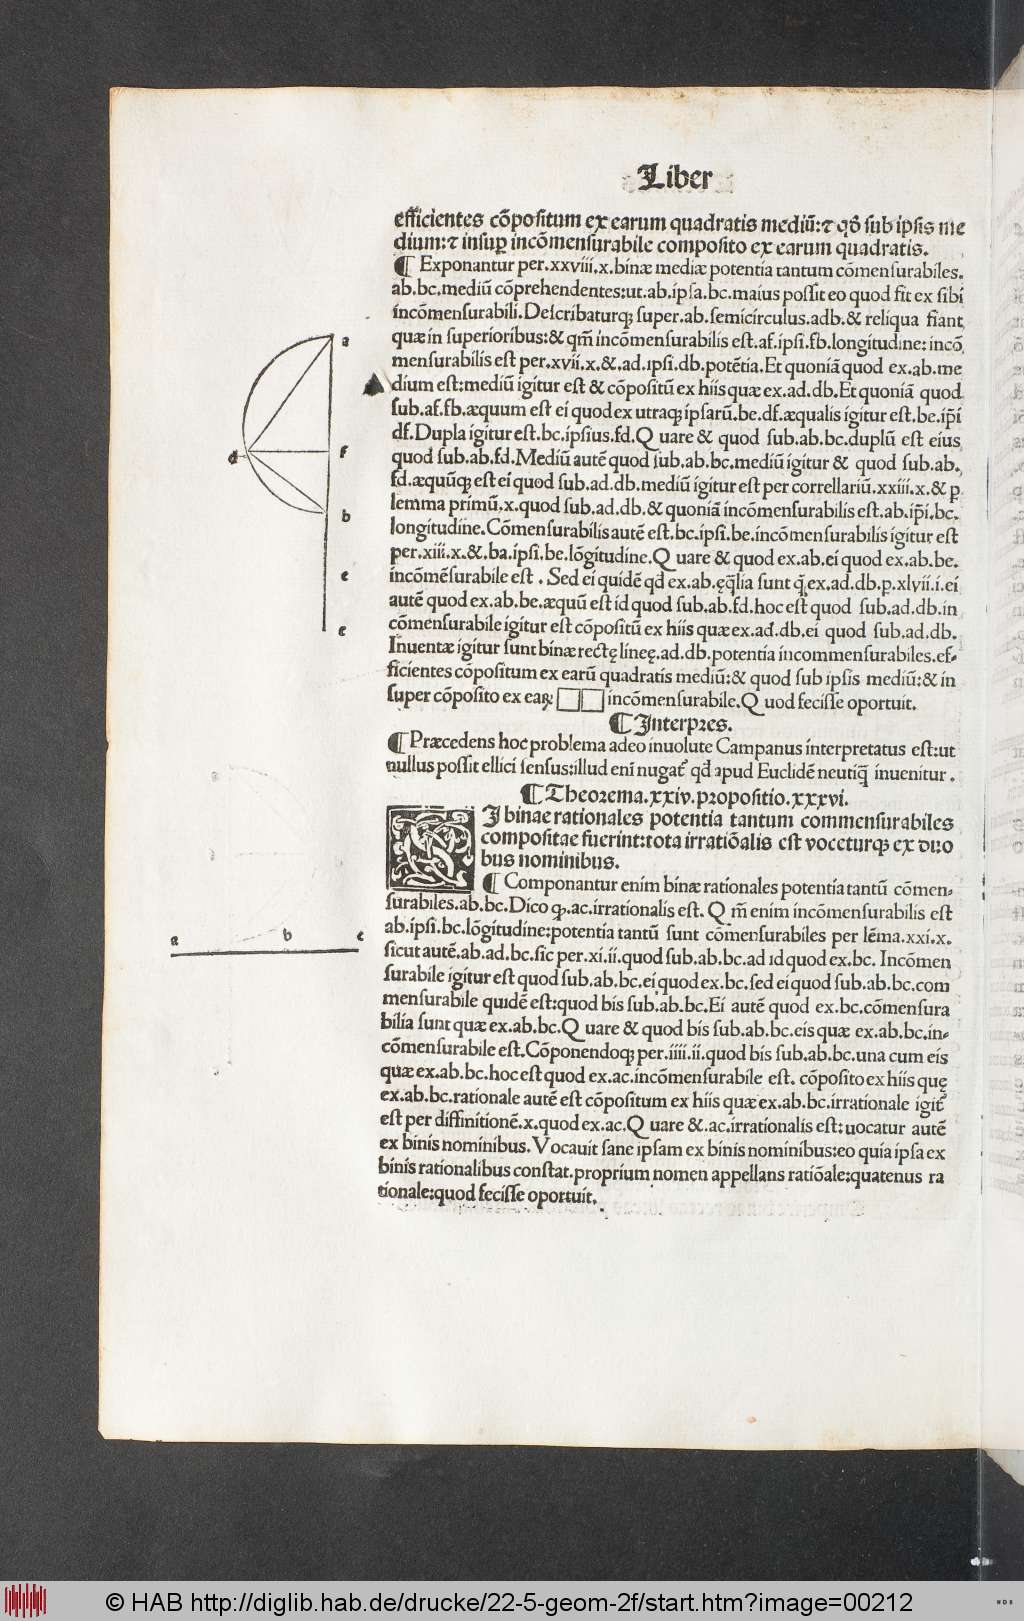 Liber
efficientes cōpositum ex earum quadratis mediū: ⁊ qđ sub ipsis me
dium: ⁊ insuꝑ incōmensurabile composito ex earum quadratis.
¶ Exponantur per.xxviii.x.binæ mediæ potentia tantum cōmensurabiles.
ab.bc.mediū cōprehendentes:ut.ab.ipsa.bc.maius possit eo quod fit ex sibi
incōmensurabili.Describaturq; super.ab.semicirculus.adb.& reliqua fiant
quæ in superioribus:& qm̄ incōmensurabilis est.af.ipsi.fb.longitudine: incō
mensurabilis est per.xvii.x.&.ad.ipsi.db.potētia.Et quoniā quod ex.ab.me
dium est:mediū igitur est & cōpositū ex hiis quæ ex.ad.db.Et quoniā quod
sub.af.fb.æquum est ei quod ex utraq; ipsarū.be.df.æqualis igitur est.be.ip̄i
df.Dupla igitur est.bc.ipsius.fd.Quare & quod sub.ab.bc.duplū est eius
quod sub.ab.fd.Mediū autē quod sub.ab.bc.mediū igitur & quod sub.ab.
fd.æquūq; est ei quod sub.ad.db.mediū igitur est per correllariū.xxiii.x.& p̱
lemma primū.x.quod sub.ad.db.& quoniā incōmensurabilis est.ab.ip̄i.bc.
longitudine.Cōmensurabilis autē est.bc.ipsi.be.incōmensurabilis igitur est
per.xiii.x.&.ba.ipsi.be.lōgitudine.Quare & quod ex.ab.ei quod ex.ab.be.
incōmēsurabile est . Sed ei quidē qđ ex.ab.ęq̄lia sunt q̄.ex.ad.db.p.xlvii.i.ei
autē quod ex.ab.be.æquū est id quod sub.ab.fd.hoc est quod sub.ad.db.in
cōmensurabile igitur est cōpositū ex hiis quæ ex.ad.db.ei quod sub.ad.db.
Inuentæ igitur sunt binæ rectę lineę.ad.db.potentia incommensurabiles.ef-
ficientes cōpositum ex earū quadratis mediū:& quod sub ipsis mediū:& in
super cōposito ex eaꝝ incōmensurabile.Quod fecisse oportuit.
¶ Interpres.
¶ Præcedens hoc problema adeo inuolute Campanus interpretatus est:ut
nullus possit ellici sensus:illud eni nugat̄ qđ apud Euclidē neutiq̄ inuenitur .
¶ Theorema.xxiv.propositio.xxxvi.
SI binae rationales potentia tantum commensurabiles
compositae fuerint:tota irratiōalis est voceturq; ex duo
bus nominibus.
¶ Componantur enim binæ rationales potentia tantū cōmen-
surabiles.ab.bc.Dico ꝙ.ac.irrationalis est. Qm̄ enim incōmensurabilis est
ab.ipsi.bc.lōgitudine:potentia tantū sunt cōmensurabiles per lēma.xxi.x.
sicut autē.ab.ad.bc.sic per.xi.ii.quod sub.ab.bc.ad id quod ex.bc. Incōmen
surabile igitur est quod sub.ab.bc.ei quod ex.bc.sed ei quod sub.ab.bc.com
mensurabile quidē est:quod bis sub.ab.bc.Ei autē quod ex.bc.cōmensura
bilia sunt quæ ex.ab.bc.Quare & quod bis sub.ab.bc.eis quæ ex.ab.bc.in-
cōmensurabile est.Cōponendoq; per.iiii.ii.quod bis sub.ab.bc.una cum eis
quæ ex.ab.bc.hoc est quod ex.ac.incōmensurabile est. cōposito ex hiis quę
ex.ab.bc.rationale autē est cōpositum ex hiis quæ ex.ab.bc.irrationale igit̄
est per diffinitionē.x.quod ex.ac.Quare &.ac.irrationalis est:uocatur autē
ex binis nominibus.Vocauit sane ipsam ex binis nominibus:eo quia ipsa ex
binis rationalibus constat.proprium nomen appellans ratiōale:quatenus ra
tionale:quod fecisse oportuit.
a
d f
b
e
c
a b c
© HAB http://diglib.hab.de/drucke/22-5-geom-2f/start.htm?image=00212